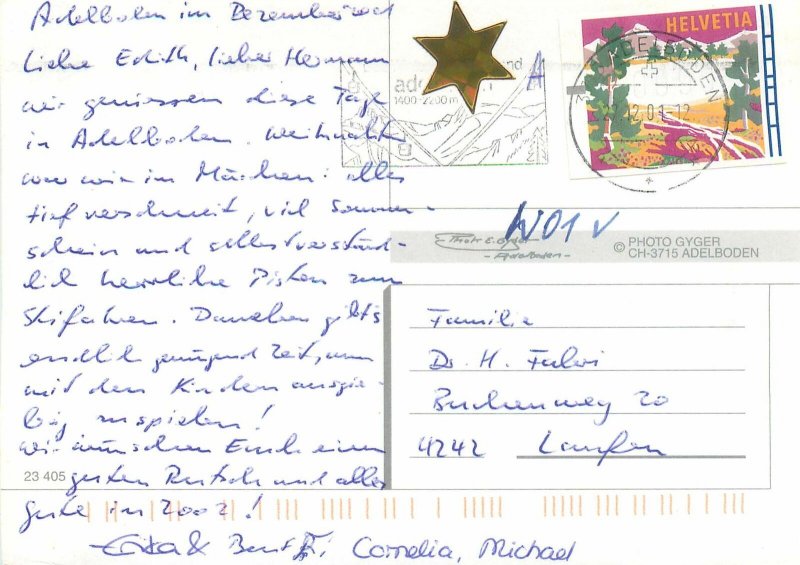 Adelboden im Dezember 2001
Liebe Edith, lieber Hermann
wir geniessen diese Tage
in Adelboden. Weihnachten
war wie im Märchen: alles
tief verschneit, viel Sonnen-
schein und selbstverständ-
lich herrliche Pisten zum
Skifahren. Daneben gibt's
endlich genügend Zeit, um
mit den Kindern ausgie-
big zu spielen!
Wir wünschen Euch einen
guten Rutsch und alles
gute in 2002!
& Cornelia, Michael
23 405
HELVETIA
ADELBODEN
12.01-12
1400-2200m
A
W01 v
© PHOTO GYGER
CH-3715 ADELBODEN
Photo Gyger
- Adelboden -
Familie
Dr. H.
Buchenweg 20
4242 Laufen